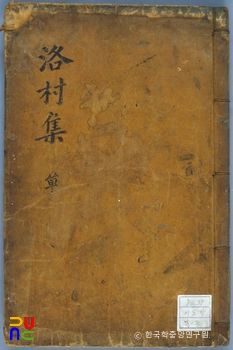 洛村集
單
© 한국학중앙연구원